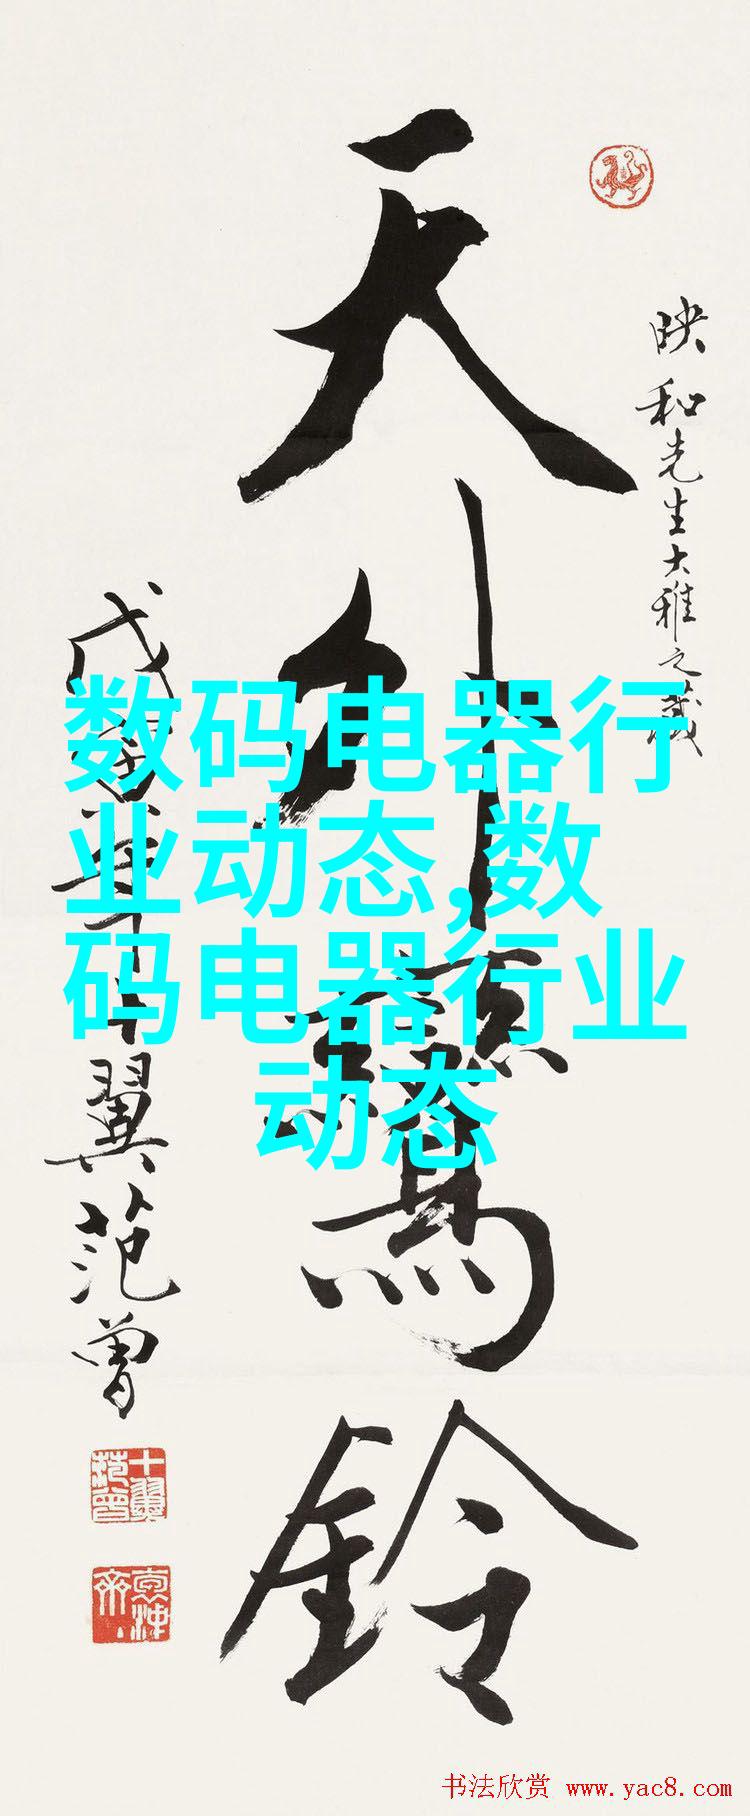 天外鸞鈴
映和先生大雅之藏
十翼范曾
数码电器行
业动态,数
码电器行业
动态
书法欣赏 www.yac8.com